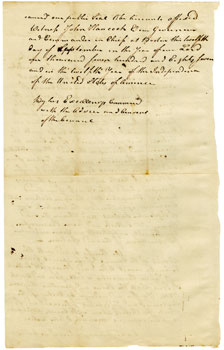 caused our public Seal to be hereunto affixed
Witness John Hancock Esqr Governor
and Commander in Chief at Boston this twelfth
day of September in the Year of our Lord
one thousand seven hundred and Eighty seven
and in the twelfth Year of the Independence
of the United States of America
By his Excellency's Command
with the Advice and Consent
of the Council